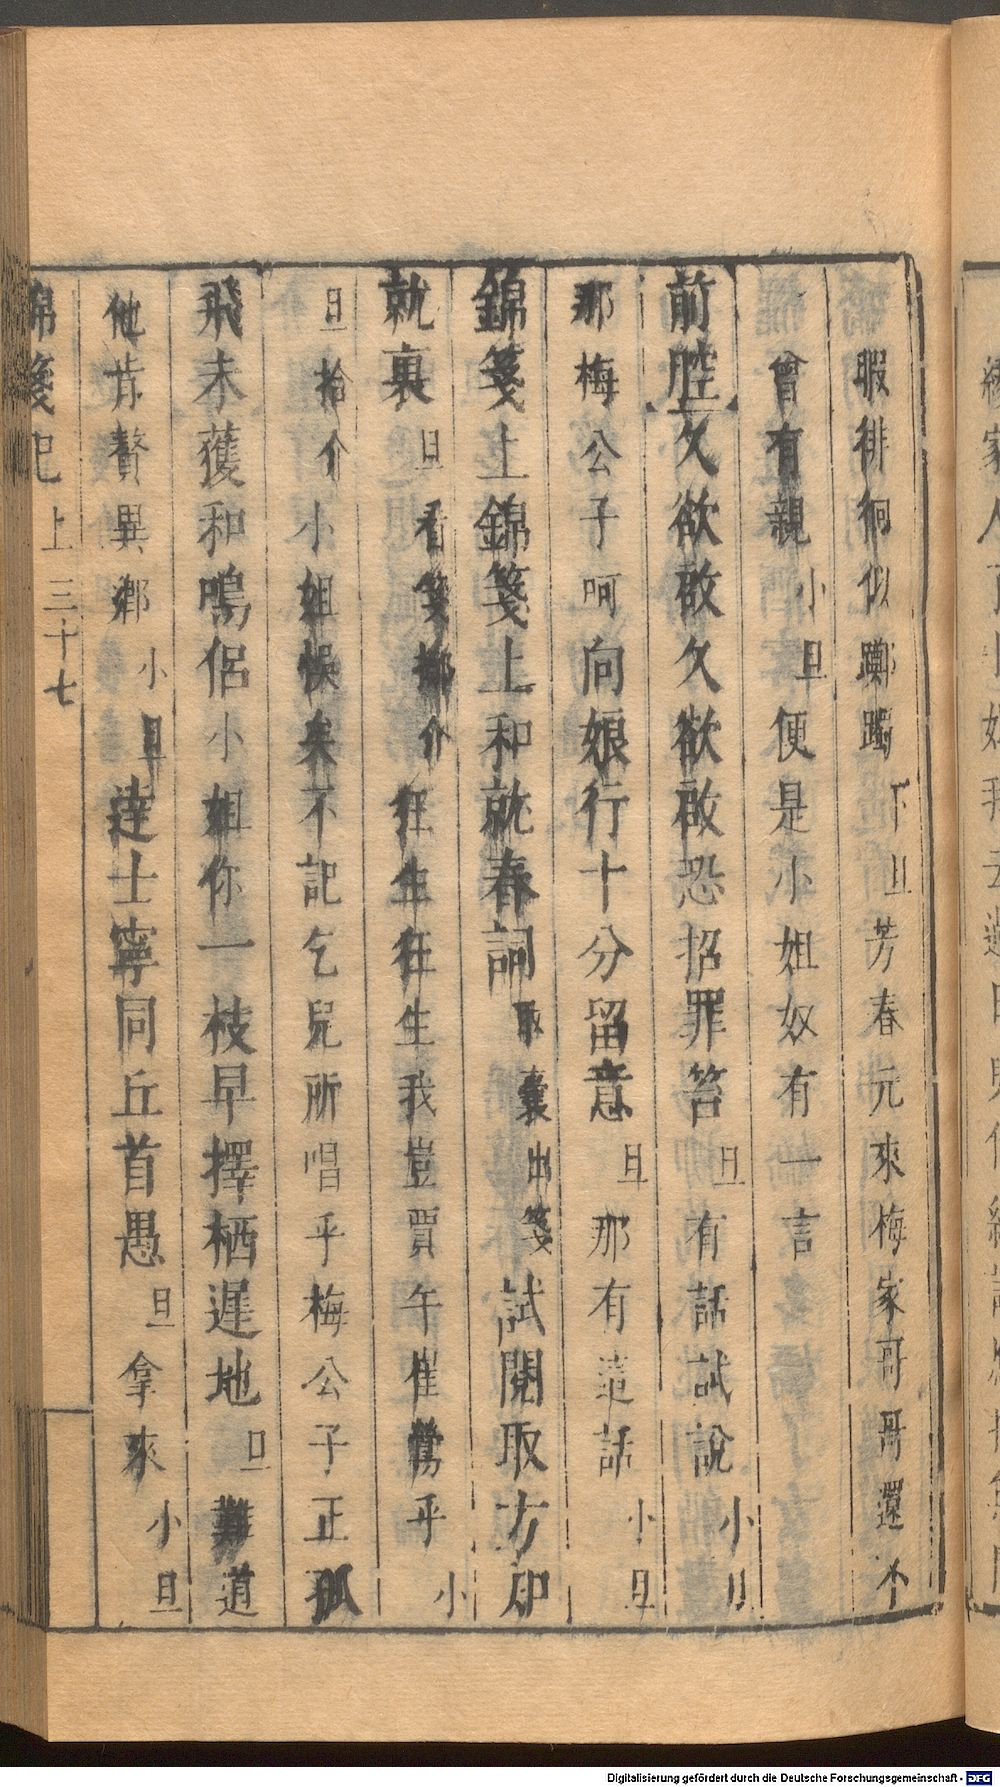 暇徘徊似躑躅下旦芳春元來梅家哥哥還不
曾有親小旦便是小姐奴有一言
前腔久欲啟久欲啟恐招罪笞旦有話試說小旦
那梅公子呵向娘行十分留意旦那有這話小旦
錦箋上錦箋上和就春詞取囊出箋試開取方知
就裏旦看箋擲介狂生狂生我豈賈午崔鶯乎小
旦拾介小姐悞矣不記乞兒所唱乎梅公子正孤
飛未獲和鳴侶小姐你一枝早擇栖遲地旦難道
他肯贅異鄉小旦達士寧同丘首愚旦拿來小旦
錦箋記 上 三十七
Digitalisierung gefördert durch die Deutsche Forschungsgemeinschaft - DFG